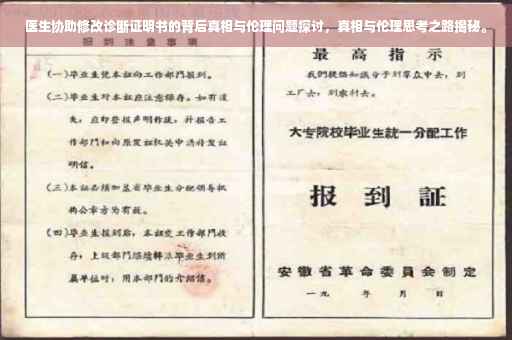 医生协助修改诊断证明书的背后真相与伦理问题探讨，真相与伦理思考之路揭秘。
报到注意事项
(一)毕业生凭本证向工作部门报到。
(二)毕业生对本证应注意保存。如有遗
失，应即登报声明作废，并报告工
作部门和向原发证机关申请补发证
明信。
(三)本证必须加盖省毕业生分配领导机
构公章方为有效。
(四)毕业生报到后，本证交工作部门收
存；上级部门继续转派毕业生到所
属单位时，用本部门的介绍信。
最高指示
我们提倡知识分子到群众中去，到
工厂去，到农村去。
大专院校毕业生统一分配工作
报到証
安徽省革命委員会制定
一九 年 月 日